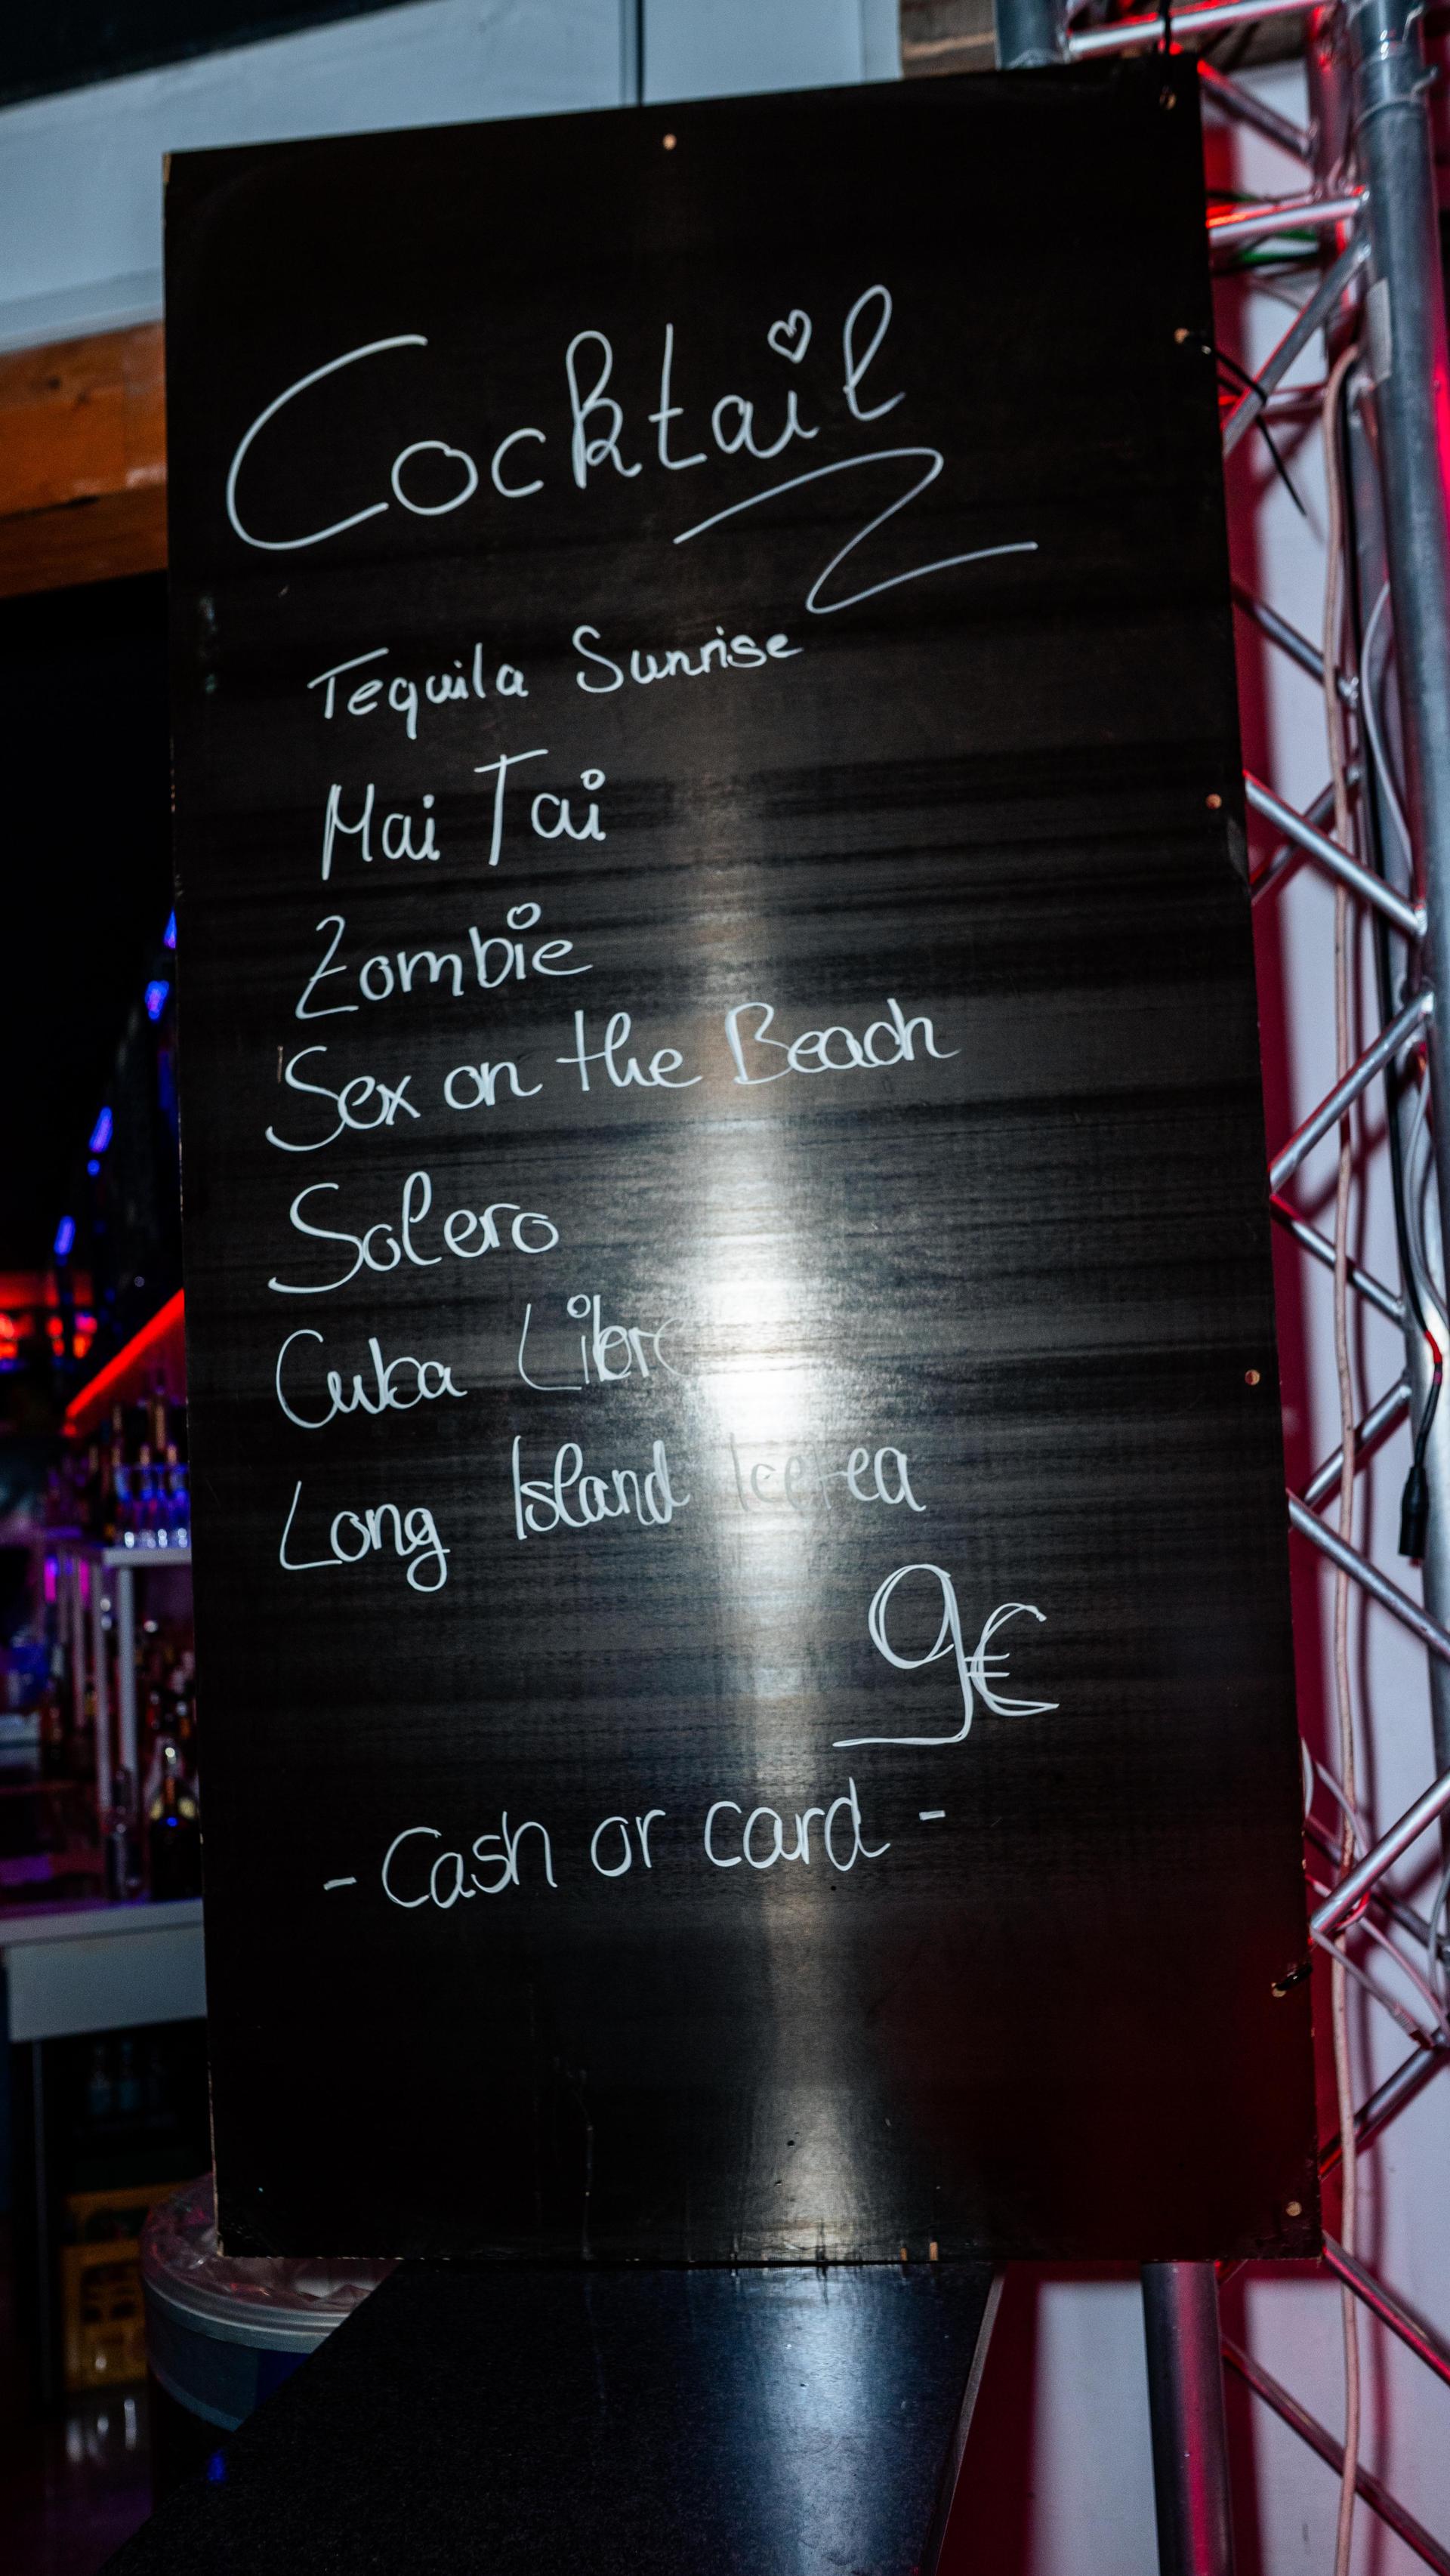 Cocktail
Tequila Sunrise
Mai Tai
Zombie
Sex on the Beach
Solero
Cuba Libre
Long Island Icetea
9€
- Cash or card -